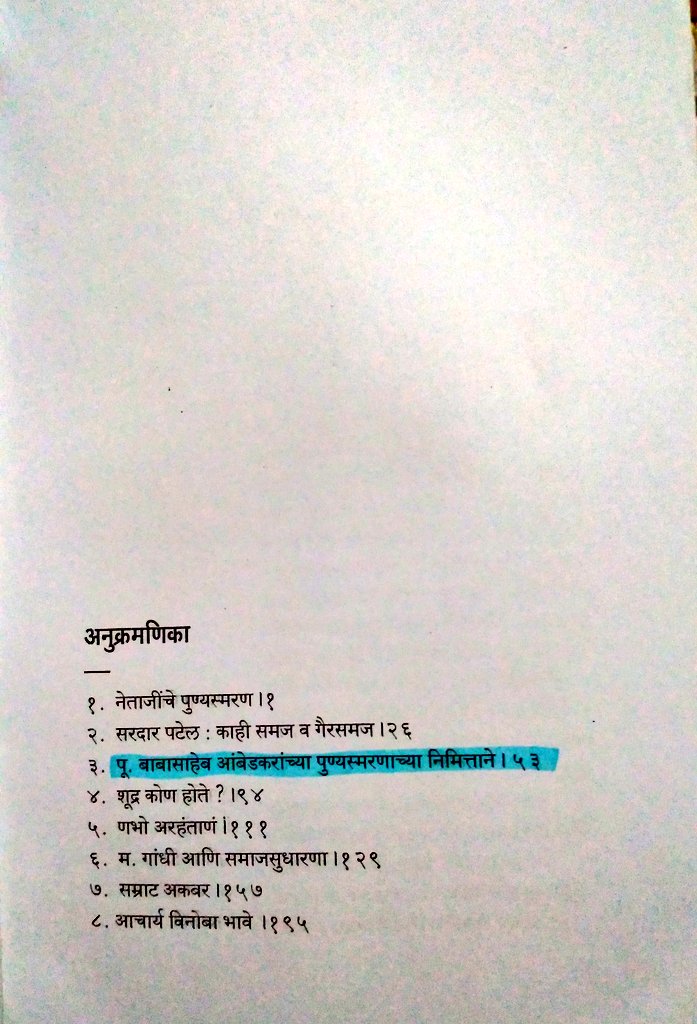 अनुक्रमणिका
१. नेताजींचे पुण्यस्मरण ।१
२. सरदार पटेल : काही समज व गैरसमज ।२६
३. पू. बाबासाहेब आंबेडकरांच्या पुण्यस्मरणाच्या निमित्ताने । ५३
४. शूद्र कोण होते ? ।९४
५. णभो अरहंताणं ।१११
६. म. गांधी आणि समाजसुधारणा ।१२९
७. सम्राट अकबर ।१५७
८. आचार्य विनोबा भावे ।१९५